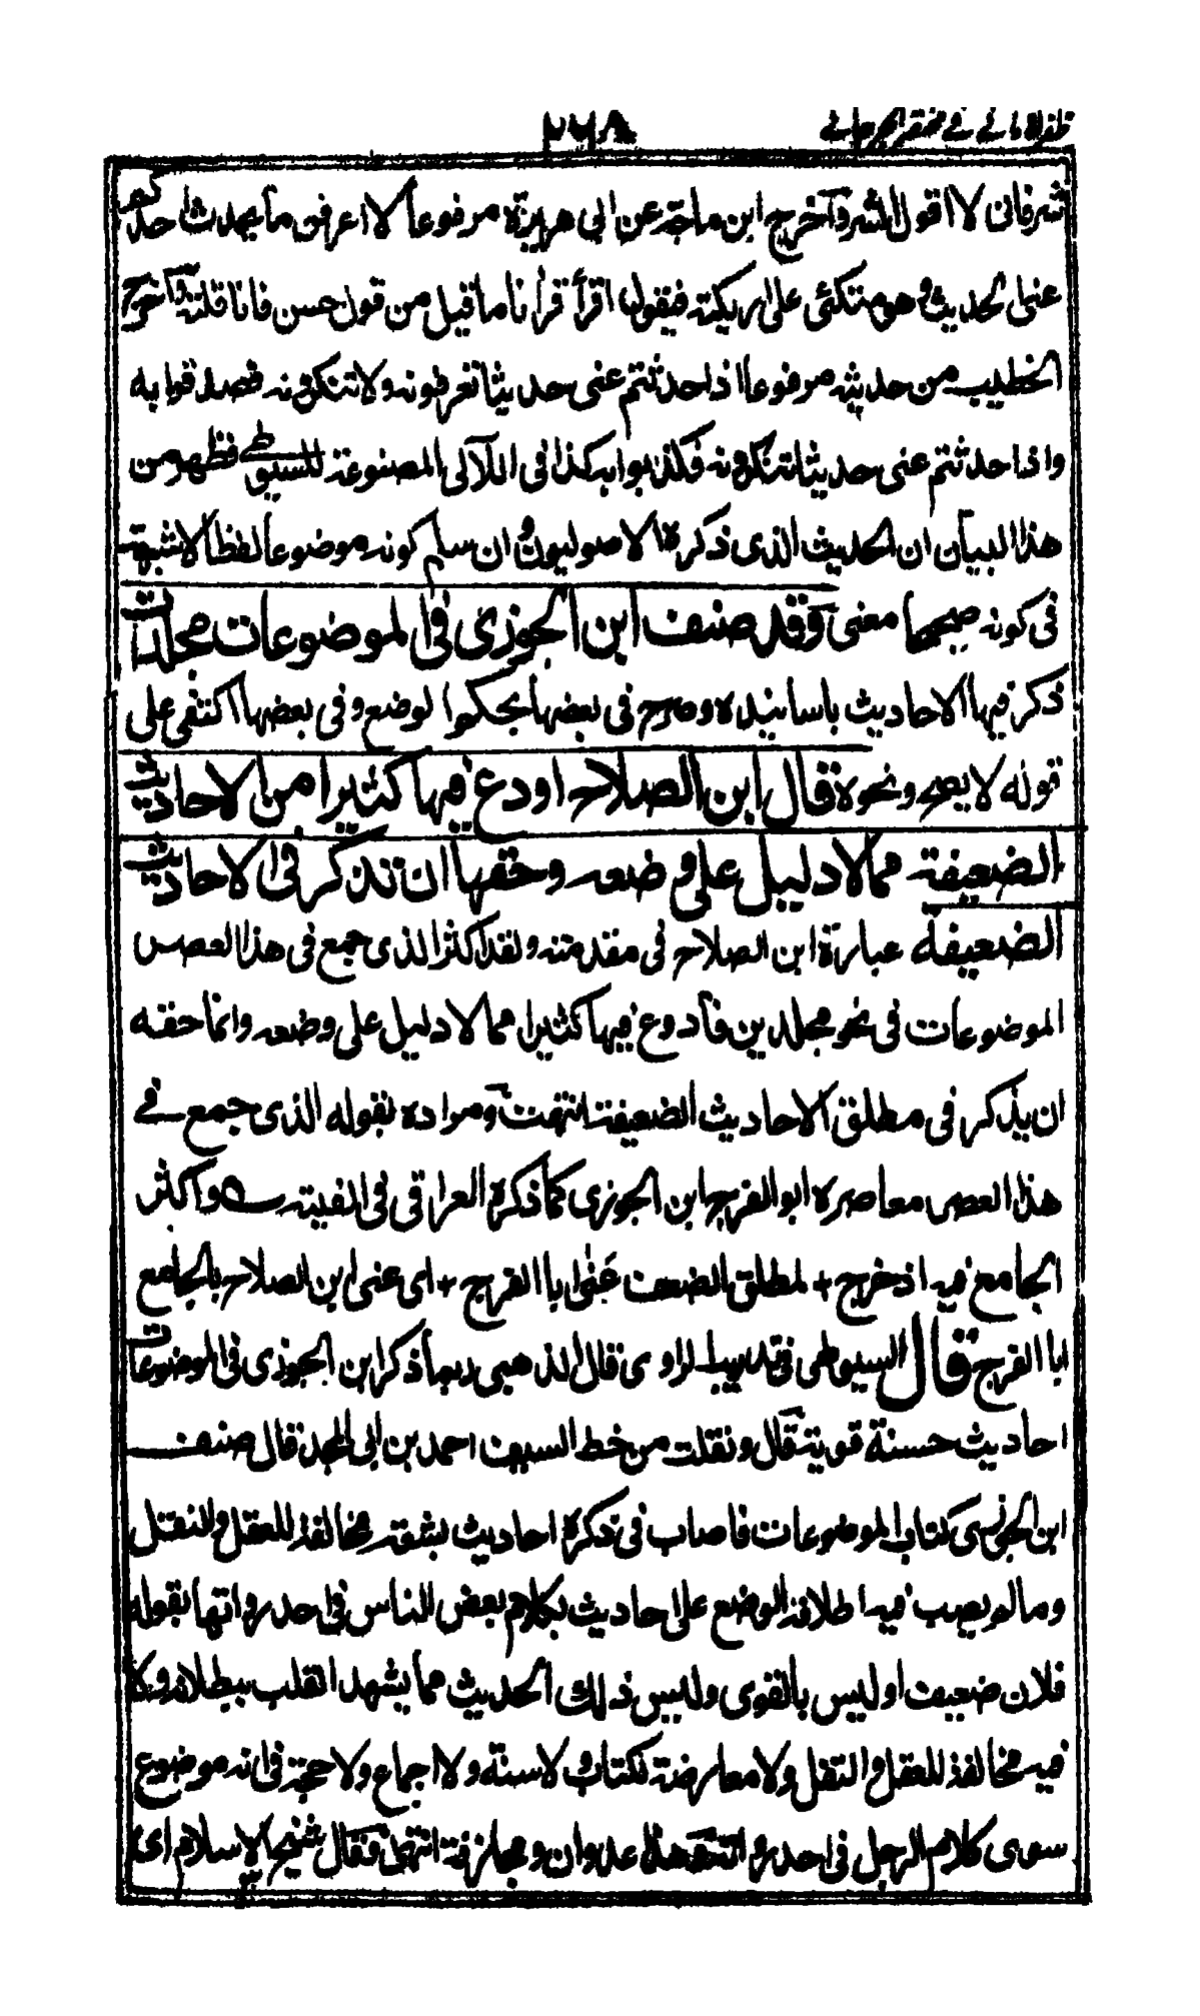 ظفر الاماني في مختصر الجرجاني ٢٦٨
شرفاني لا اقول الشر وآخرج ابن ماجة عن ابي هريرة مرفوعا لا اعرفن ما يحدث احدكم
عني الحديث وهو متكئ على اريكته فيقول اقرأ قرانا ما قيل من قول حسن فانا قلته وآخرج
الخطيب من حديثه مرفوعا اذا حدثتم عني حديثا تعرفونه ولا تنكرونه فصدقوا به
واذا حدثتم عني حديثا تنكرونه فكذبوا به كذا في اللآلى المصنوعة للسيوطي فظهر من
هذا البيان ان الحديث الذي ذكره الاصوليون وان سلم كونه موضوعا لفظا لا شبهة
في كونه صحيحا معنى وقد صنف ابن الجوزي في الموضوعات مجلدات
ذكر فيها الاحاديث باسانيده وصرح في بعضها بحكم الوضع وفي بعضها اكتفى على
قوله لا يصح ونحوه قال ابن الصلاح اودع فيها كثيرا من الاحاديث
الضعيفة مما لا دليل على وضعه وحقها ان تذكر في الاحاديث
الضعيفة عبارة ابن الصلاح في مقدمته ولقد اكثر الذي جمع في هذا العصر
الموضوعات في نحو مجلدين فأودع فيها كثيرا مما لا دليل على وضعه وانما حقه
ان يذكر في مطلق الاحاديث الضعيفة انتهت ومراده بقوله الذي جمع في
هذا العصر معاصره ابو الفرج ابن الجوزي كما ذكره العراقي في الفيته واكثر
الجامع فيه اذ خرج + لمطلق الضعف عنى ابا الفرج + اي عنى ابن الصلاح بالجامع
ابا الفرج قال السيوطي في تدريب الراوي قال الذهبي ربما ذكر ابن الجوزي في الموضوعات
احاديث حسنة قوية قال ونقلت من خط السيف احمد بن ابي المجد قال صنف
ابن الجوزي كتاب الموضوعات فاصاب في ذكره احاديث بشعة مخالفة للعقل والنقل
وما لم يصب فيه اطلاقه الوضع على احاديث بكلام بعض الناس في احد رواتها بقوله
فلان ضعيف او ليس بالقوي وليس ذلك الحديث مما يشهد القلب ببطلانه ولا
فيه مخالفة للعقل والنقل ولا معارضة لكتاب ولا سنة ولا اجماع ولا حجة في انه موضوع
سوى كلام الرجل في احد رواته وهذا عدوان ومجازفة انتهى وقال شيخ الاسلام اي